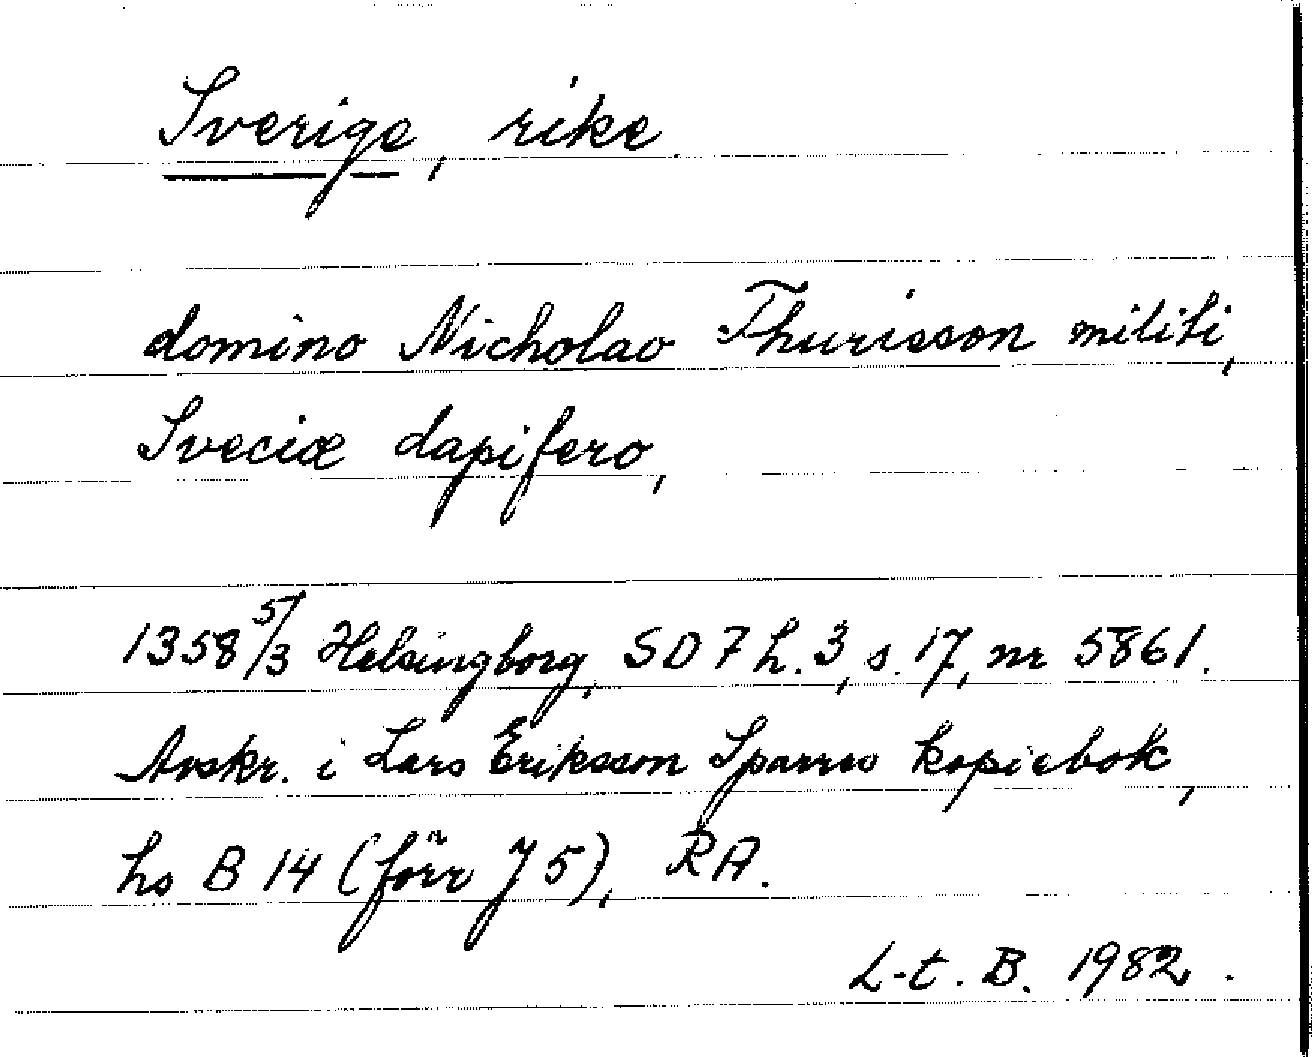 Sverige, rike
domino Nicholao Thurisson militi,
Sveciæ dapifero,
1358 5/3 Helsingborg, SD 7 h. 3, s. 17, nr 5861.
Avskr. i Lars Eriksson Sparres kopiebok,
hs B 14 (förr J 5), RA.
L-t. B. 1982.